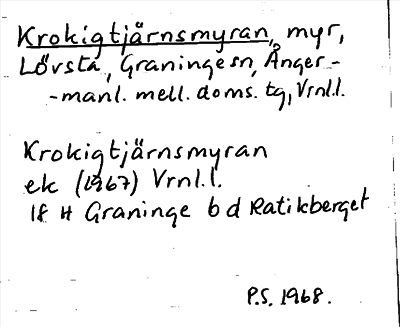 Krokigtjärnsmyran, myr,
Lövsta, Graninge sn, Ånger-
-manl. mell. doms. tg, Vrnl.l.
Krokigtjärnsmyran
ek (1967) Vrnl.l.
If H Graninge b d Ratikberget
P.S. 1968.